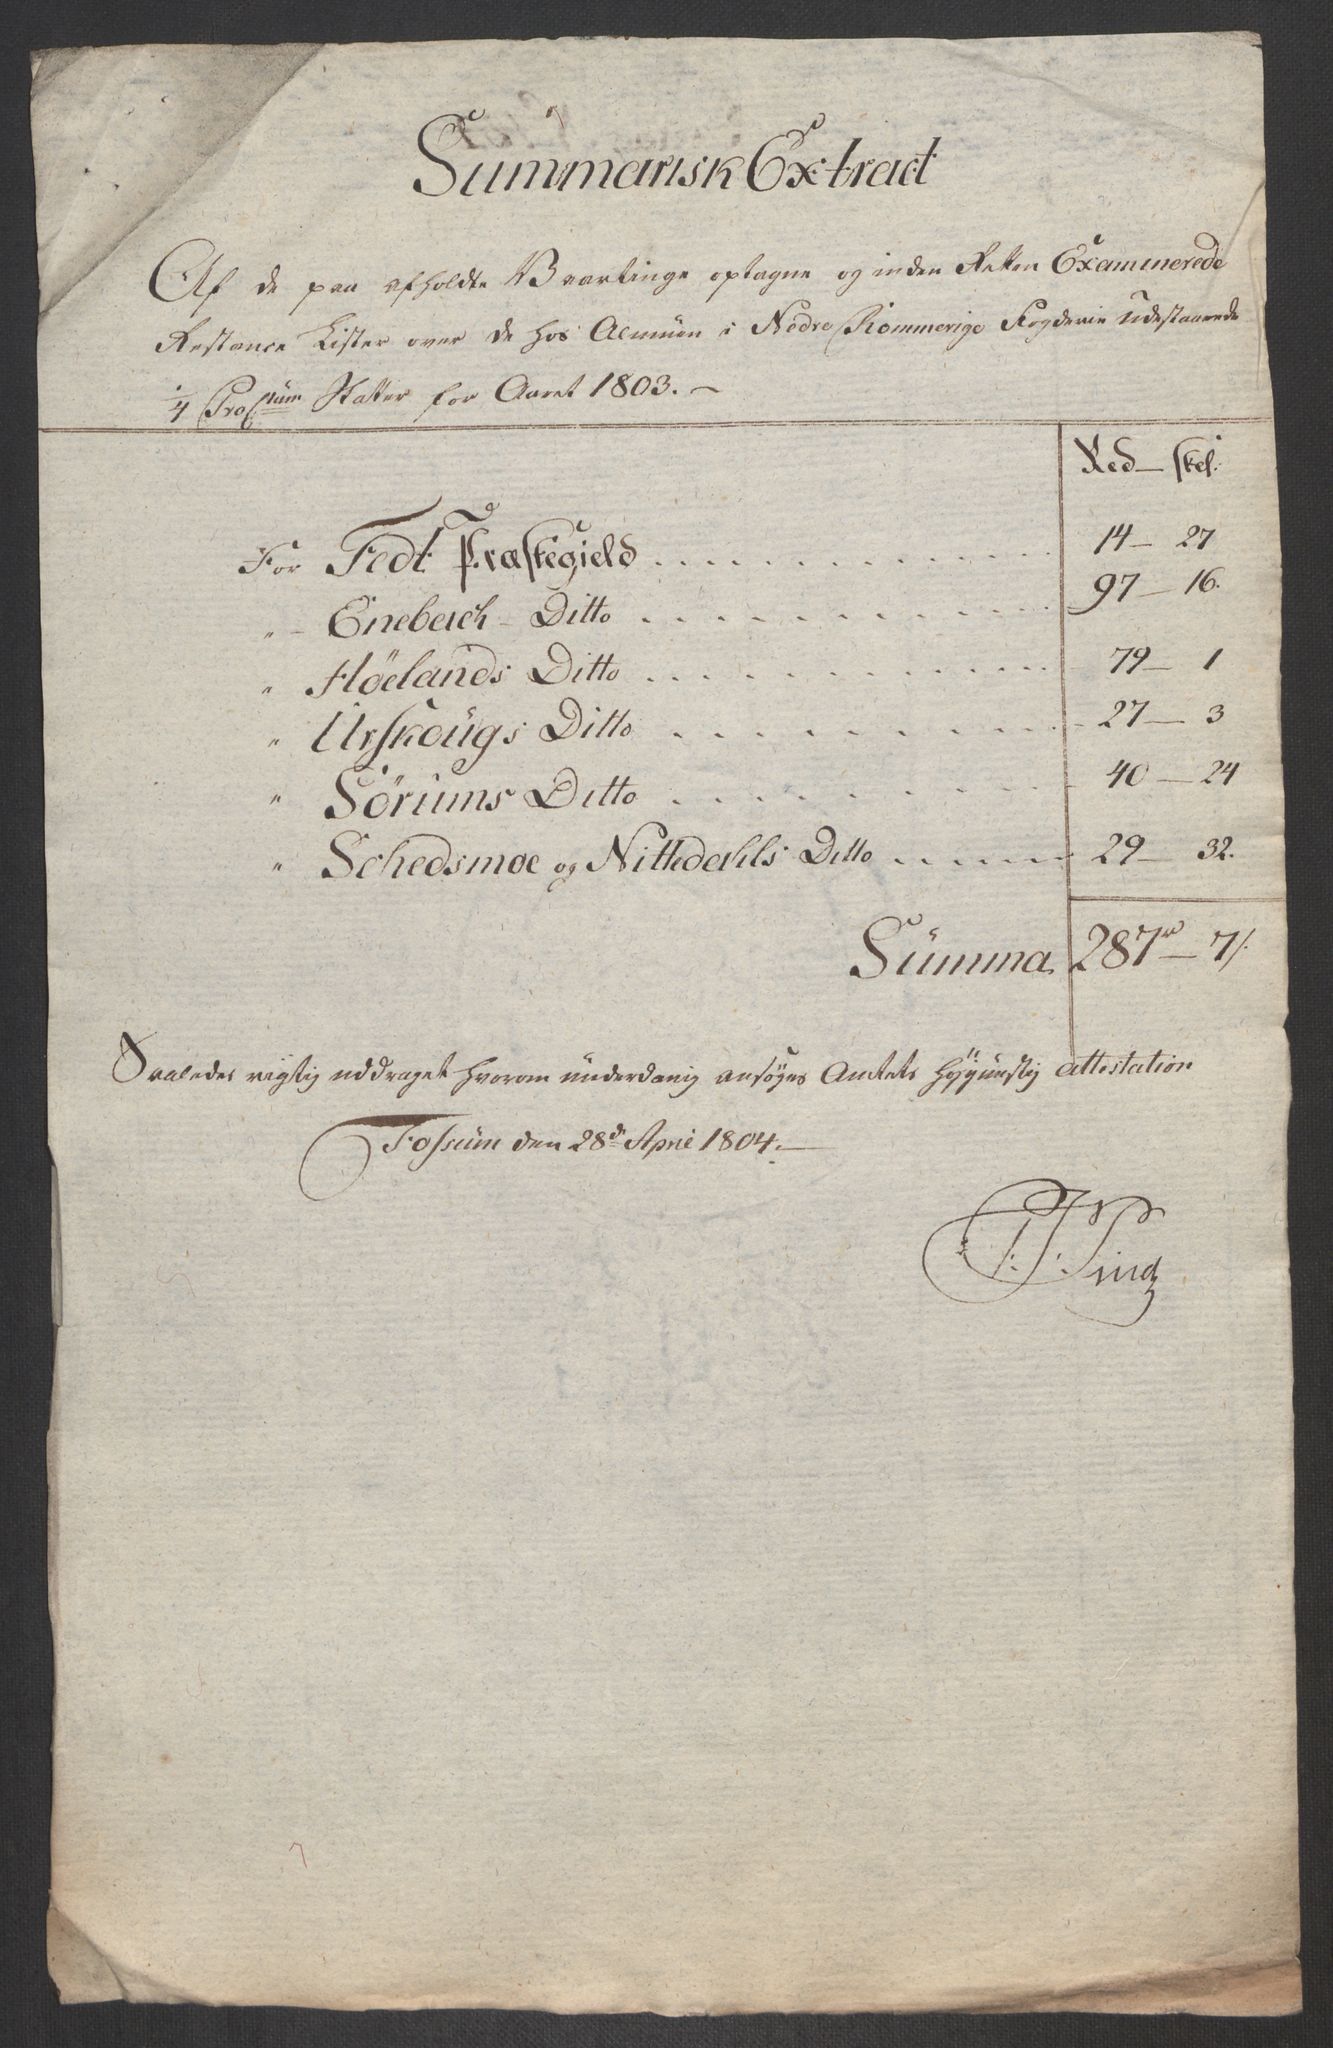 Summarisk Extract
Af de paa afholdte Vaartinge optagne og inden Retten Examinerede
Restance Lister over de hos Almuen i Nedre Rommerige Fogderie udestaaende
1/4 Pro Ctum Skatter for Aaret 1803. —
Rd — skl:
For Fedt Præstegield . . . . . . . . . . 14 — 27
" — Enebach — Ditto . . . . . . . . . . 97 — 16.
" Høelands Ditto . . . . . . . . . . 79 — 1
" Urskougs Ditto . . . . . . . . . . 27 — 3
" Sørums Ditto . . . . . . . . . . 40 — 24
" Schedsmoe og Nittedahls Ditto . . . . . . 29 — 32.
Summa 287 rd — 7 s.
Saaledes rigtig uddraget hvorom underdanig ansøges Amtets høygunstig attestation
Fossum den 28de April 1804. —